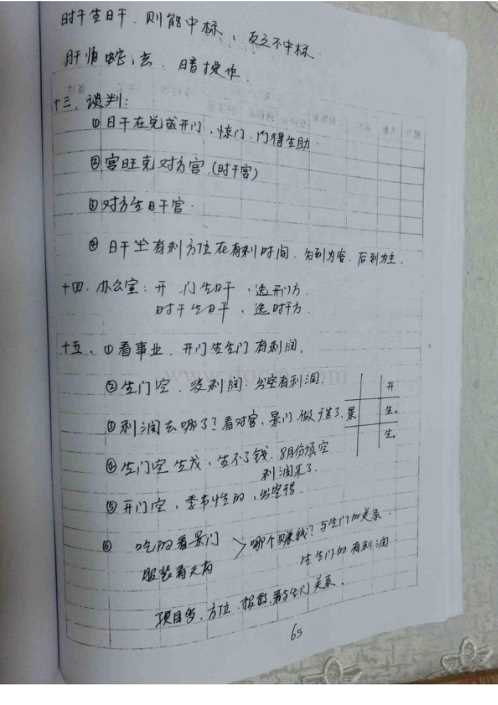 时干生日干，则能中标，反之不中标.
肝肾蛇玄，暗操作.
十三、谈判:
①日干在兑或开门，惊门，门得生助
②宫旺克对方宫(时干宫)
③对方生日干宫.
④日干坐有利方位在有利时间，先到为客，后到为主.
十四、办公室: 开门生日干，选开门方.
时干生日干，选时干方.
十五、①看事业，开门生生门有利润.
②生门空，没利润，出空有利润.
开
③利润去哪了?看对宫，景门做广告了.景
生。
④生门空生戊，生不了钱.8月份填空
利润来了.
生。
⑤开门空，季节性的，出空转
⑥吃的看景门
服装看天有
哪个赚钱?与生门的关系.
生生门的有利润
项目等，方位，看与生门关系.
65